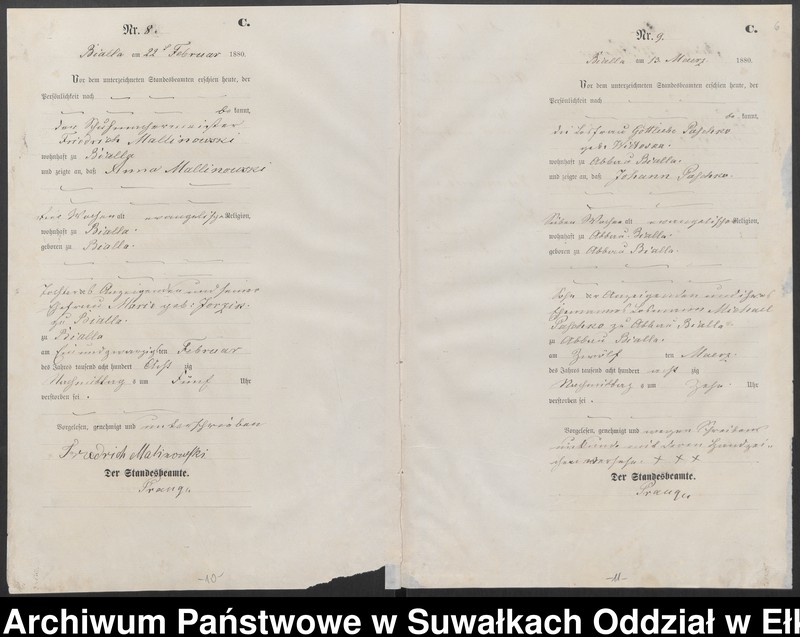 Nr. 8.
C.
Bialla am 22t Februar 1880.
Vor dem unterzeichneten Standesbeamten erschien heute, der
Persönlichkeit nach
be kannt,
der Schuhmachermeister
Friedrich Mallinowski
wohnhaft zu Bialla
und zeigte an, daß Anna Mallinowski
Wochen alt evangelische Religion,
wohnhaft zu Bialla.
geboren zu Bialla.
Tochter des Anzeigenden und seiner
Ehefrau Marie geb:
zu Bialla.
zu Bialla
am Ein und zwanzigsten Februar
des Jahres tausend acht hundert Acht zig
Nachmittag s um Fünf Uhr
verstorben sei.
Vorgelesen, genehmigt und unterschrieben
Friedrich Malinowski
Der Standesbeamte.
-10-
C.
6
Nr. 9.
Bialla am 13. Maerz 1880.
Vor dem unterzeichneten Standesbeamten erschien heute, der
Persönlichkeit nach
be kannt,
die Losfrau Gottliebe Paschko
wohnhaft zu Abbau Bialla.
und zeigte an, daß Johann Paschko.
Sieben Wochen alt evangelische Religion,
wohnhaft zu Abbau Bialla.
geboren zu Abbau Bialla.
Sohn der Anzeigenden und ihres
Ehemannes Losmann Michael
Paschko zu Abbau Bialla
zu Abbau Bialla.
am Zwölf ten Maerz.
des Jahres tausend acht hundert acht zig
Nachmittag s um Zehn Uhr
verstorben sei.
Vorgelesen, genehmigt und wegen Schreibens
unkunde mit deren Handzei-
chen versehn. + + +
Der Standesbeamte.
-11-
Archiwum Państwowe w Suwałkach Oddział w Ełk